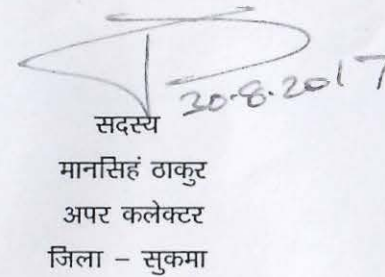 30.8.2017
सदस्य
मानसिहं ठाकुर
अपर कलेक्टर
जिला – सुकमा